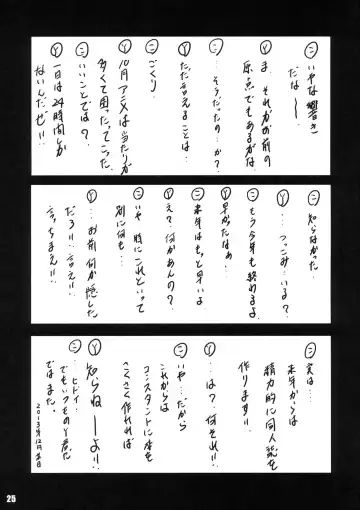 ㋛ いやな響き
だなー
Ⓨ ま、それがお前の
原点でもあるがな
㋛ …そうだったの…か?
Ⓨ ただ言えることは…
㋛ ごくり
Ⓨ 10月アニメは当たりが
多くて困ったってこった
㋛ いいことでは?
Ⓨ 一日は24時間しか
ないんだぜ!!
㋛ 知らなかった…
Ⓨ …つっこみ…いる?
㋛ もう今年も終わるよ
Ⓨ 早かったなぁ
㋛ 来年はもっと早いよ
Ⓨ え?何かあんの?
㋛ いや 特にこれといって
別に何も…
Ⓨ …お前何か隠した
だろ!!…言え!!
言っちまえ!!
㋛ 実は…
来年からは
精力的に同人誌を
作ります!!
Ⓨ …は?何それ!!
㋛ いや…だから
これからは
コンスタントに本を
こくさく作れれば
Ⓨ 知らねーよ!!
㋛ …ヒドイ…
でもいつものY君だ
ではまた。
2013年12月吉日
25